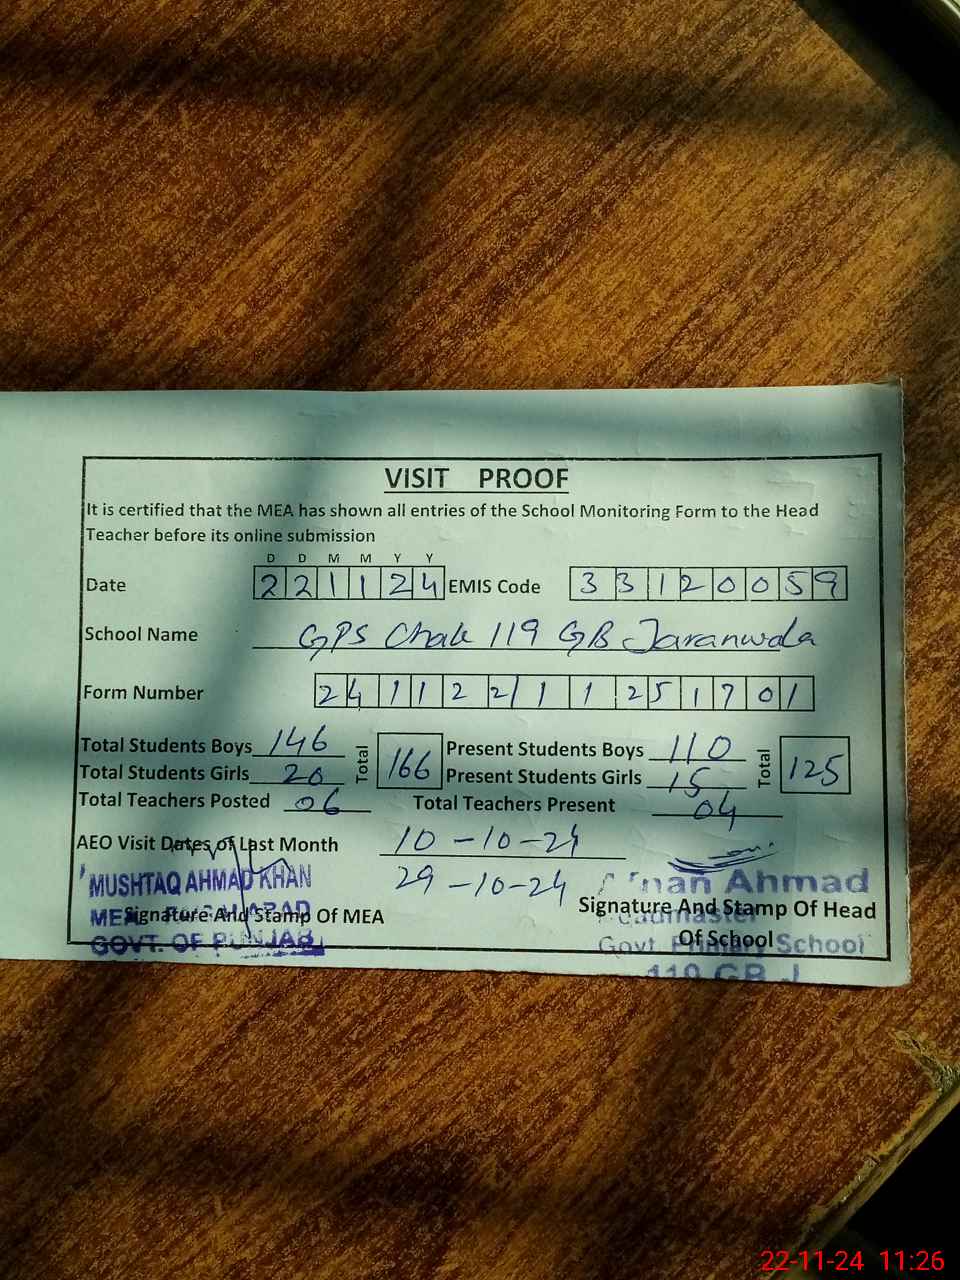 VISIT PROOF
It is certified that the MEA has shown all entries of the School Monitoring Form to the Head
Teacher before its online submission
D D M M Y Y
Date 221124 EMIS Code 33120059
School Name GPS Chak 119 GB Jaranwala
Form Number 24112211251701
Total Students Boys 146 Total 166 Present Students Boys 110 Total 125
Total Students Girls 20 Present Students Girls 15
Total Teachers Posted 06 Total Teachers Present 04
AEO Visit Dates of Last Month 10-10-24
29-10-24
MUSHTAQ AHMAD KHAN
Ahmad
Signature And Stamp Of MEA
MEA FAISALABAD
GOVT. OF PUNJAB
Signature And Stamp Of Head
Of School
Headmaster
Govt Primary School
119 GB J
22-11-24 11:26